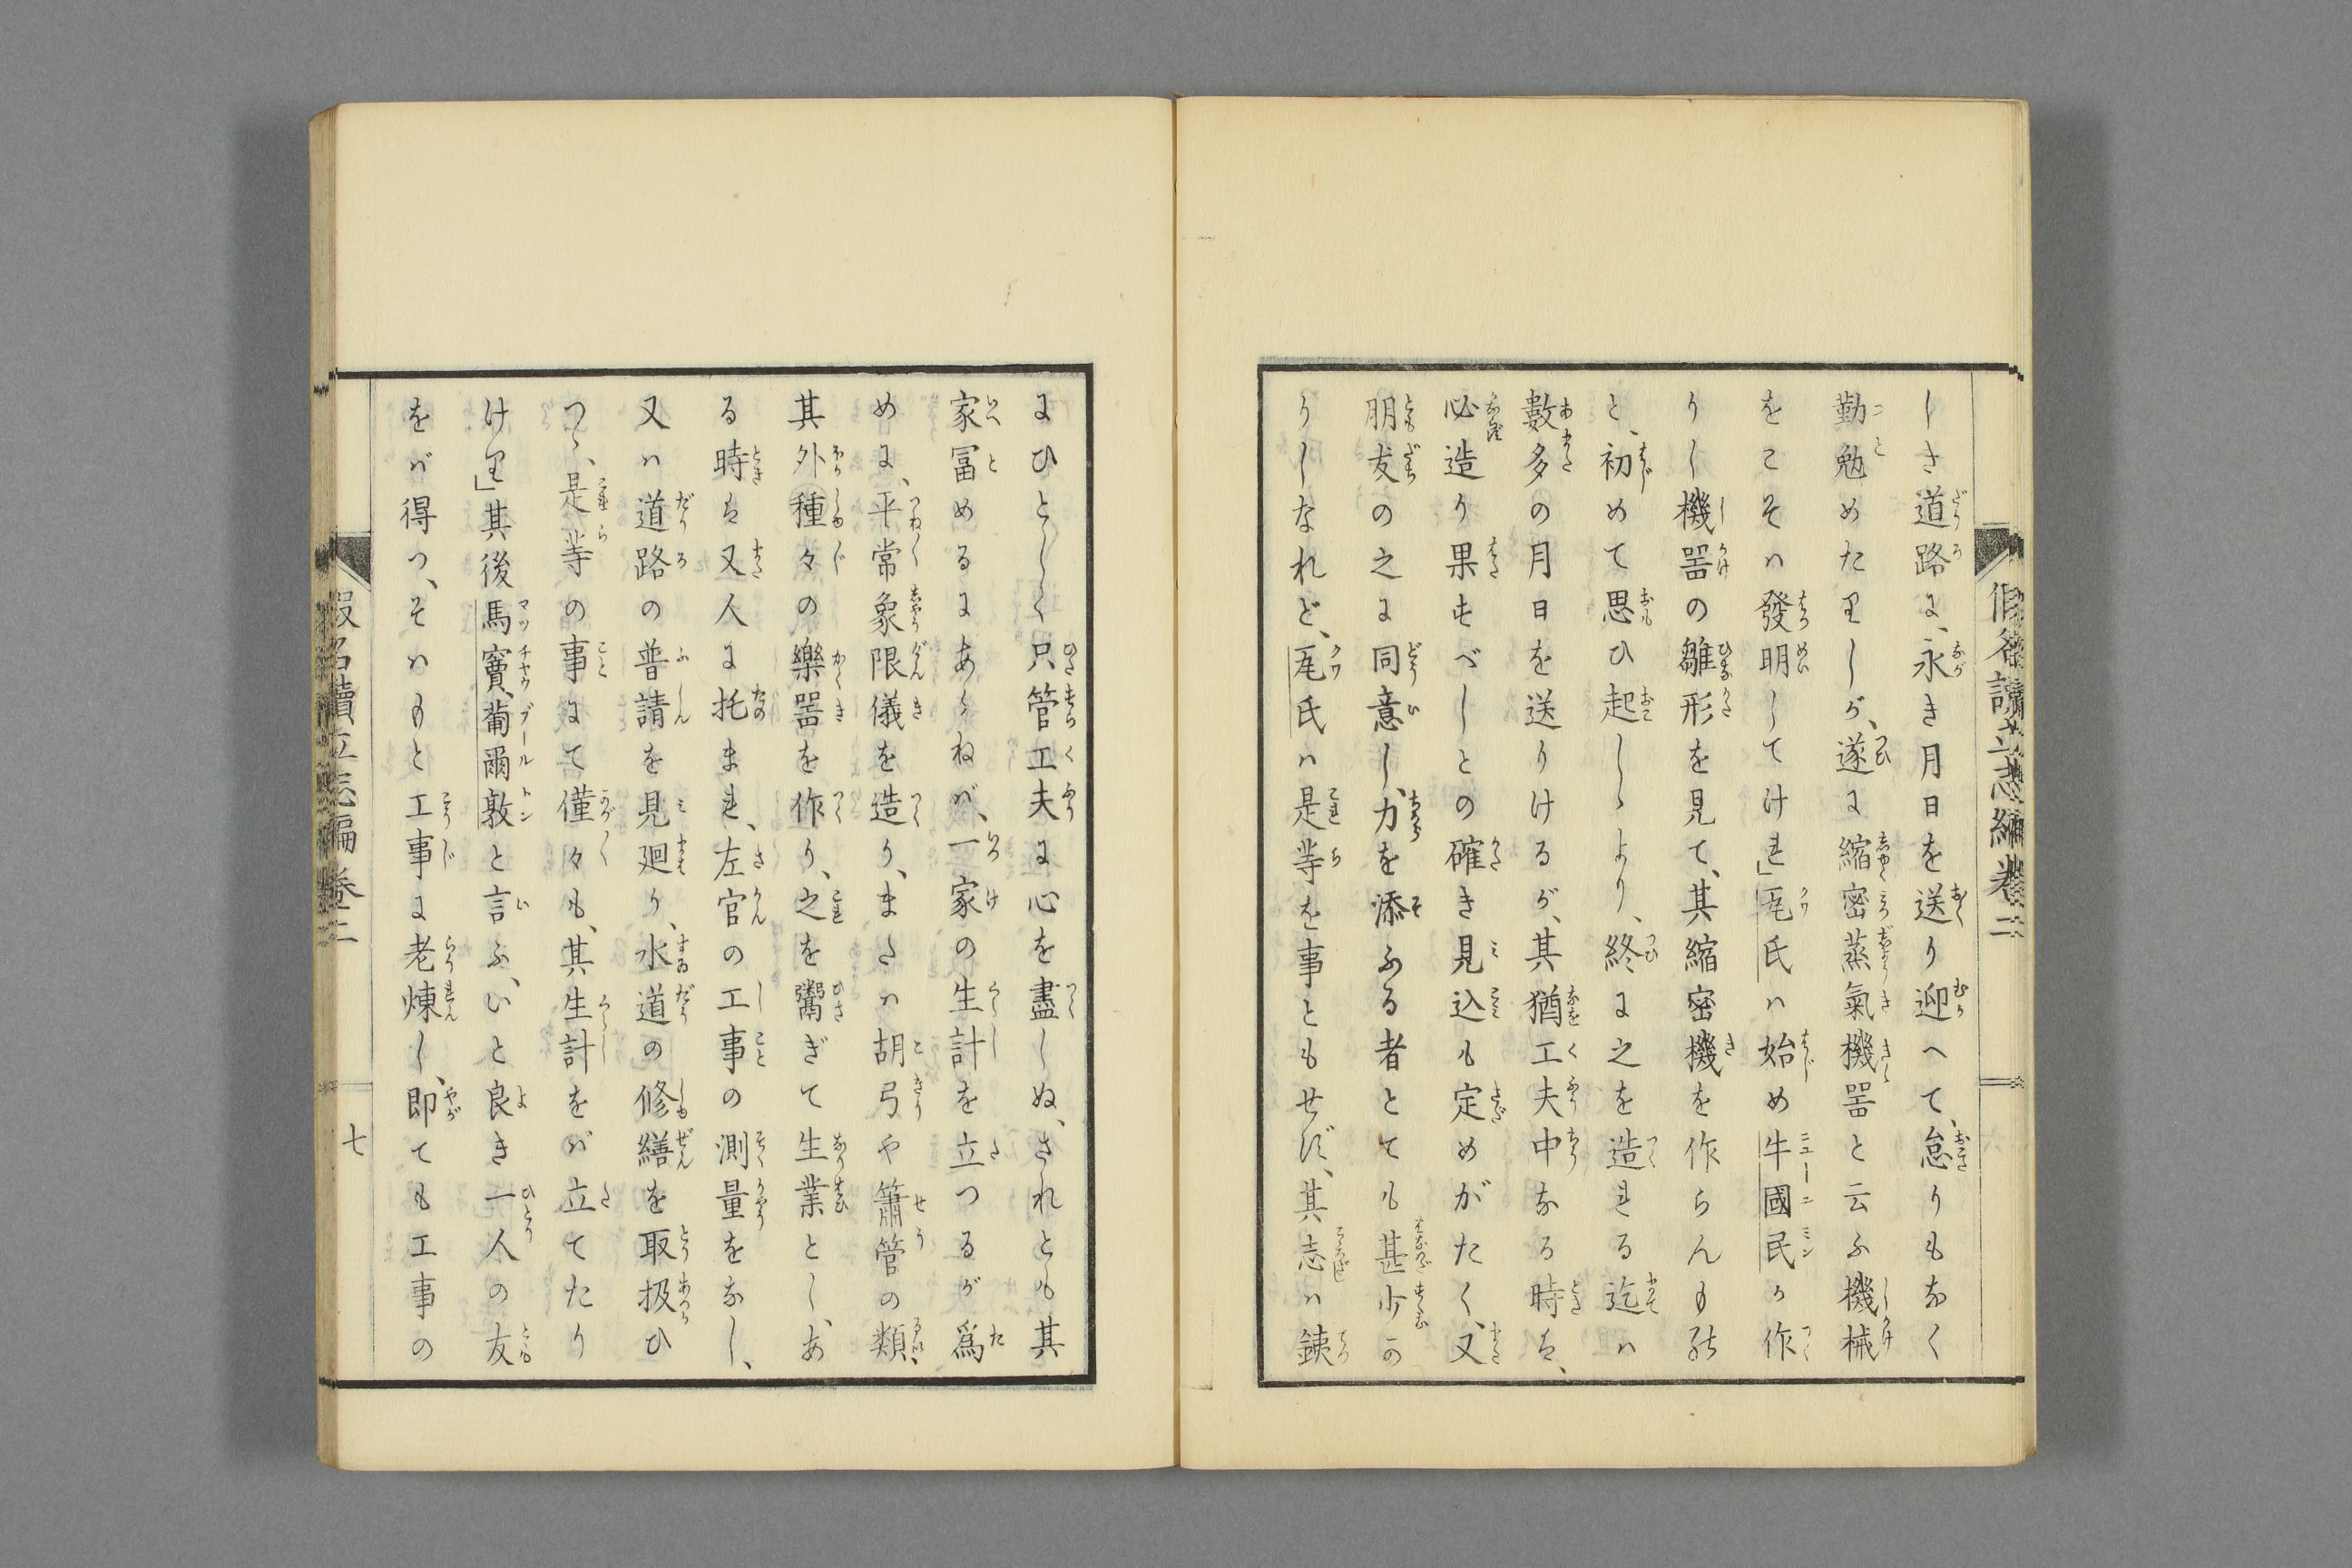 しき道路に、永き月日を送り迎へて、怠りもなく
勤勉めたりしが、遂に縮密蒸氣機噐と云ふ機械
をこそハ發明してけれ」瓦氏ハ始め牛國民が作
りし機噐の雛形を見て、其縮密機を作らんもの
と、初めて思ひ起しゝより、終に之を造れる迄ハ
數多の月日を送りけるが、其猶工夫中なる時は、
必造り果すべしとの確き見込も定めがたく、又
朋友の之に同意し、力を添ふる者とても甚少か
りしなれど、瓦氏ハ是等を事ともせず、其志ハ銕
にひとしく只管工夫に心を盡しぬ、されとも其
家冨めるにあらねバ、一家の生計を立つるが爲
めに、平常象限儀を造り、またハ胡弓や簫管の類、
其外種々の樂噐を作り、之を鬻ぎて生業とし、あ
る時は又人に托まれ、左官の工事の測量をなし、
又ハ道路の普請を見廻り、水道の修繕を取扱ひ
つゝ、是等の事にて僅々も、其生計をバ立てたり
けり」其後馬竇、葡爾敦と言ふ、いと良き一人の友
をバ得つ、そハもと工事に老煉し、即ても工事の
假名讀立志編卷二
七